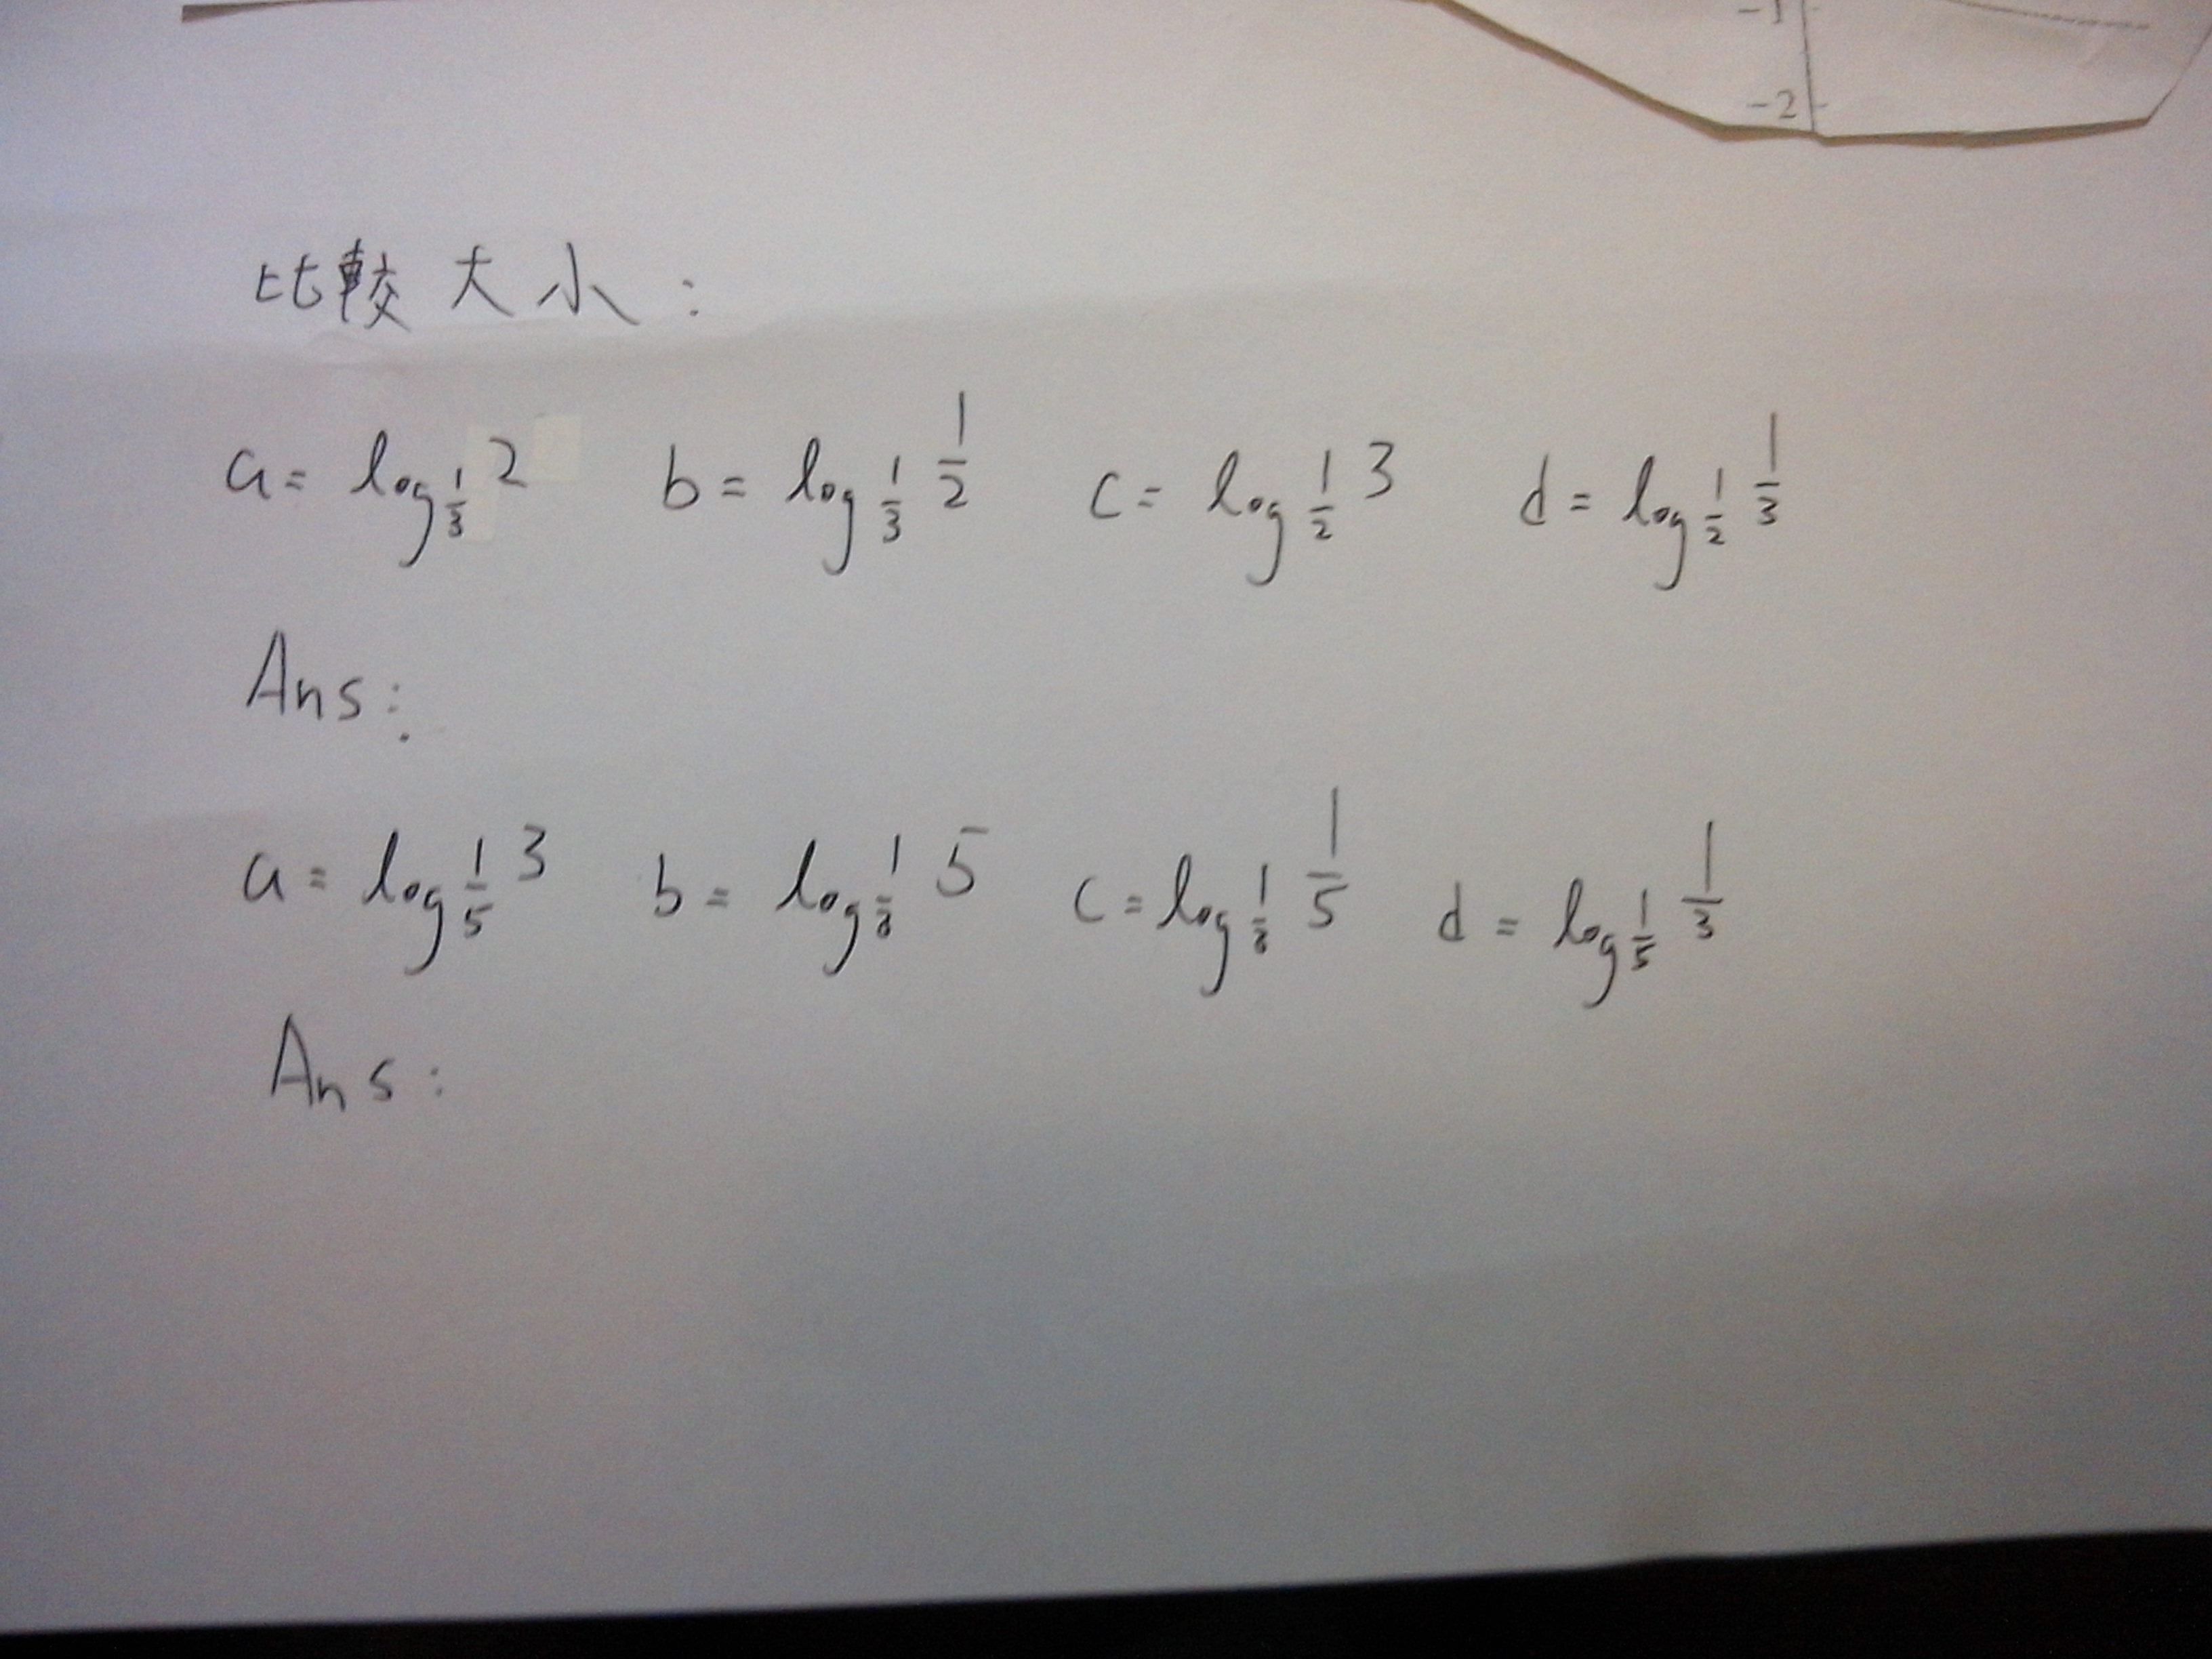 -1
-2
比較大小：
a = log_{1/3} 2 b = log_{1/3} 1/2 c = log_{1/2} 3 d = log_{1/2} 1/3
Ans:
a = log_{1/5} 3 b = log 5 c = log 1/5 d = log_{1/5} 1/3
Ans: